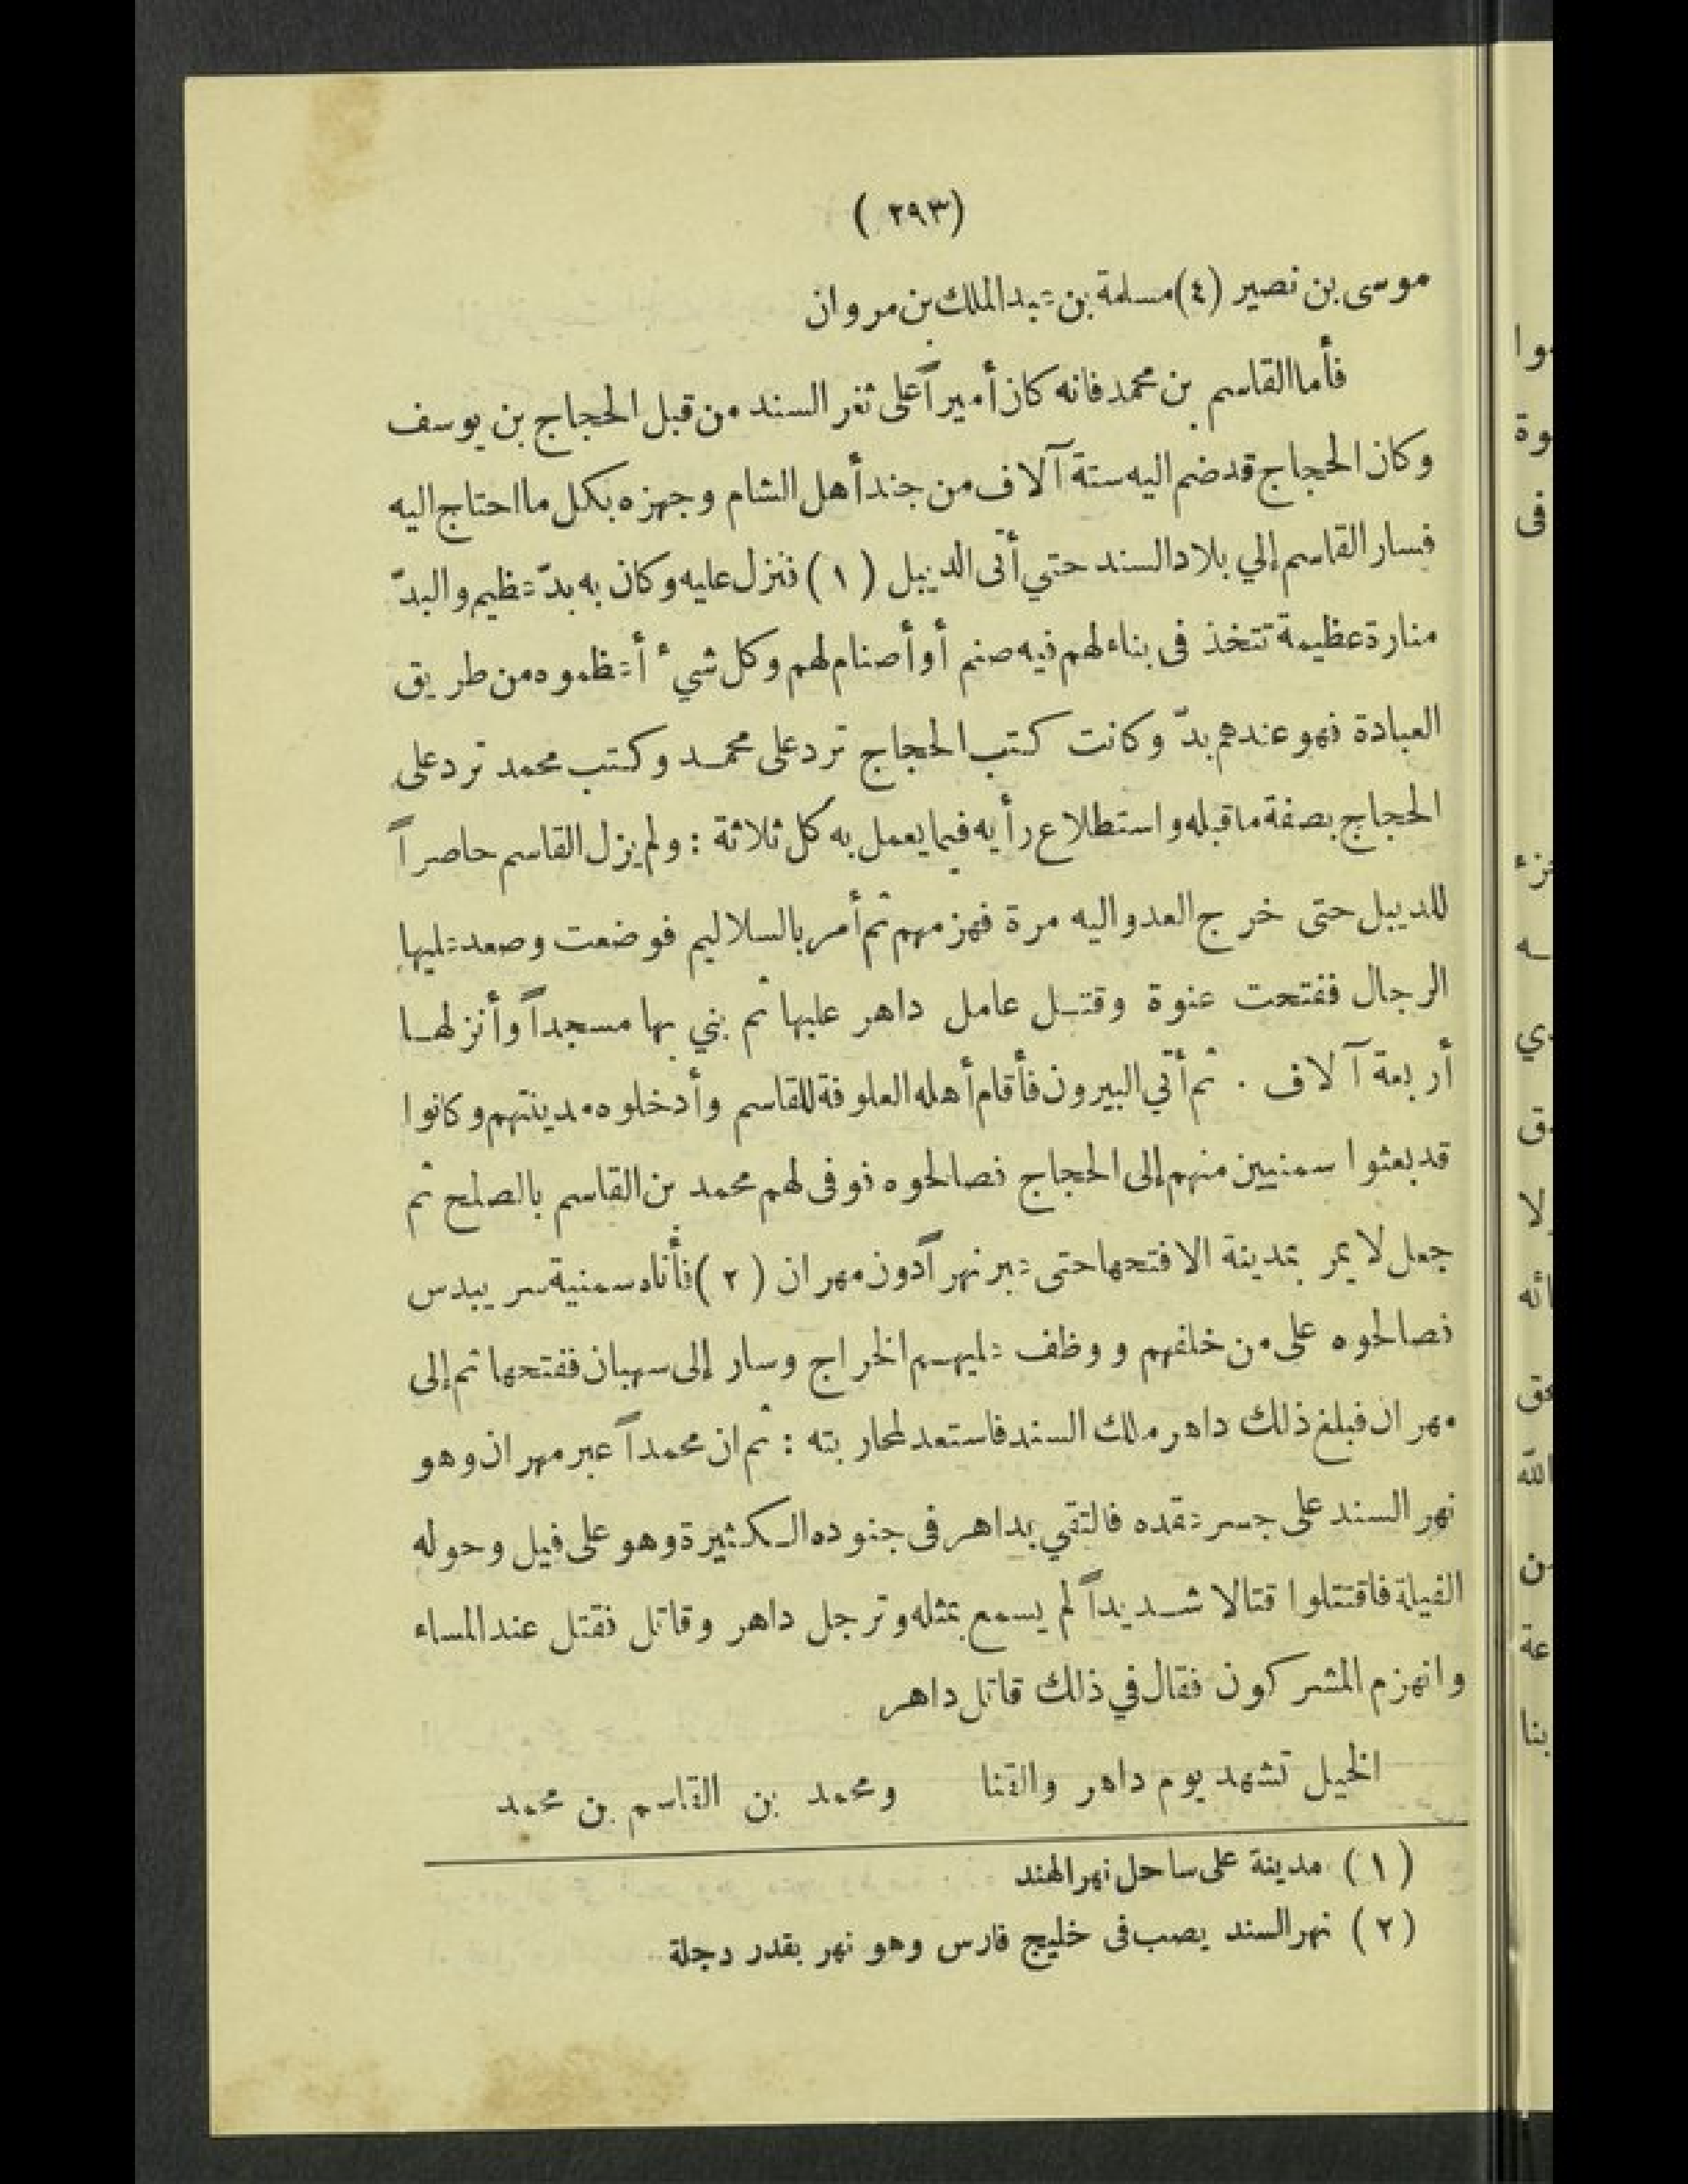 (٢٩٣)
موسى بن نصير (٤) مسلمة بن عبد الملك بن مروان
فأما القاسم بن محمد فانه كان أميراً على ثغر السند من قبل الحجاج بن يوسف
وكان الحجاج قد ضم اليه ستة آلاف من جند أهل الشام وجهزه بكل ما احتاج اليه
فسار القاسم إلي بلاد السند حتي أتى الديبل (١) فنزل عليه وكان به بدّ عظيم والبدّ
منارة عظيمة تتخذ فى بناء لهم فيه صنم أو أصنام لهم وكل شيء أعظموه من طريق
العبادة فهو عندهم بدّ وكانت كتب الحجاج ترد على محمد وكتب محمد ترد على
الحجاج بصفة ما قبله واستطلاع رأيه فيما يعمل به كل ثلاثة : ولم يزل القاسم حاصراً
للديبل حتى خرج العدو اليه مرة فهزمهم ثم أمر بالسلاليم فوضعت وصعد عليها
الرجال ففتحت عنوة وقتل عامل داهر عليها ثم بني بها مسجداً وأنزلها
أربعة آلاف . ثم أتي البيرون فأقام أهله العلوفة للقاسم وأدخلوه مدينتهم وكانوا
قد بعثوا سمنيين منهم إلى الحجاج فصالحوه فوفى لهم محمد بن القاسم بالصلح ثم
جعل لا يمر بمدينة الا فتحها حتى عبر نهراً دون مهران (٢) فأتاه سمنية سربيدس
فصالحوه على من خلفهم ووظف عليهم الخراج وسار إلى سهبان ففتحها ثم إلى
مهران فبلغ ذلك داهر ملك السند فاستعد لمحاربته : ثم ان محمداً عبر مهران وهو
نهر السند على جسر عقده فالتقي بداهر فى جنوده الكثيرة وهو على فيل وحوله
الفيلة فاقتتلوا قتالا شديداً لم يسمع بمثله وترجل داهر وقاتل فقتل عند المساء
وانهزم المشركون فقال في ذلك قاتل داهر
الخيل تشهد يوم داهر والقنا ومحمد بن القاسم بن محمد
(١) مدينة على ساحل نهر الهند
(٢) نهر السند يصب فى خليج فارس وهو نهر بقدر دجلة